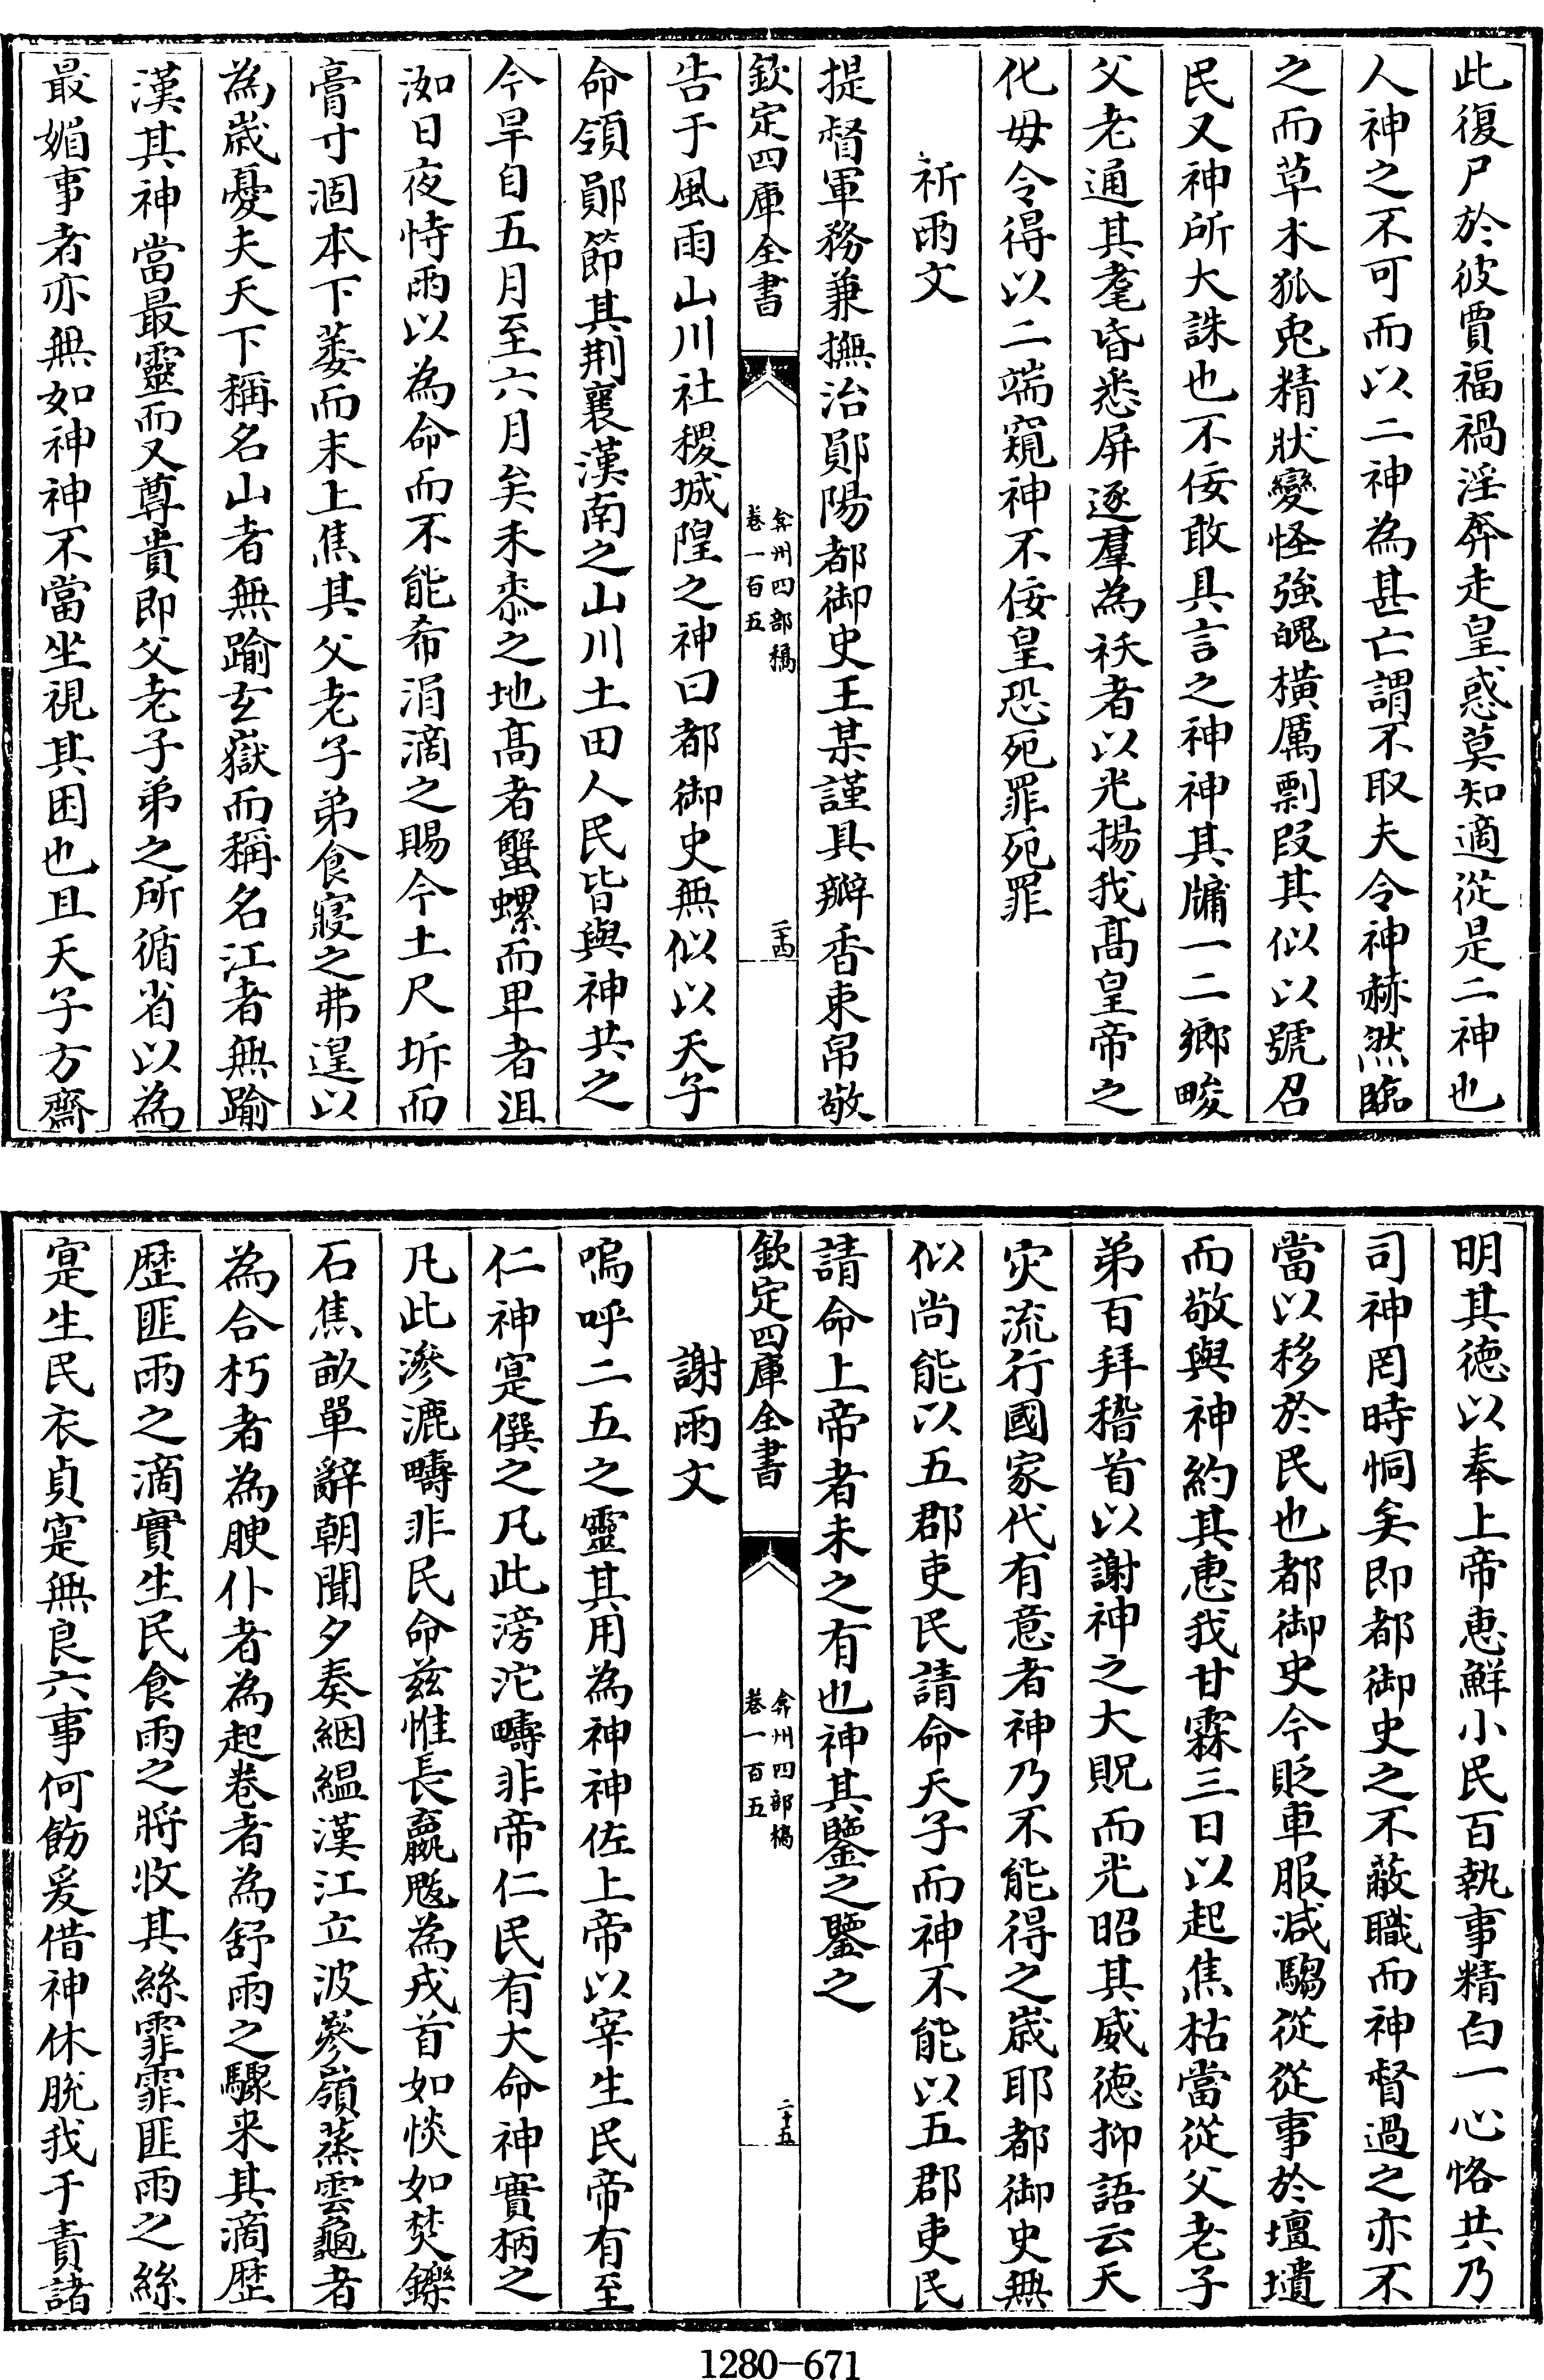 此復尸於彼賈福禍淫奔走皇惑莫知適從是二神也
人神之不可而以二神為甚亡謂不取夫令神赫然臨
之而草木狐兎精狀變怪強魄橫厲剽叚其似以號召
民又神所大誅也不佞敢具言之神神其牗一二鄉畯
父老通其耄昏悉屏逐羣為祅者以光揚我髙皇帝之
化毋令得以二端窺神不佞皇恐死罪死罪
祈雨文
提督軍務兼撫治鄖陽都御史王某謹具瓣香束帛敬
欽定四庫全書
弇州四部稿
卷一百五
二十四
告于風雨山川社稷城隍之神曰都御史無似以天子
命領鄖節其荆襄漢南之山川土田人民皆與神共之
今旱自五月至六月矣禾黍之地髙者蟹螺而卑者沮
洳日夜恃雨以為命而不能希涓滴之賜今土尺坼而
膏寸涸本下萎而末上焦其父老子弟食寢之弗遑以
為嵗憂夫天下稱名山者無踰玄嶽而稱名江者無踰
漢其神當最靈而又尊貴即父老子弟之所循省以為
最媚事者亦無如神神不當坐視其困也且天子方齋
明其徳以奉上帝恵鮮小民百執事精白一心恪共乃
司神罔時恫矣即都御史之不蔽職而神督過之亦不
當以移於民也都御史今貶車服减騶從從事於壇壝
而敬與神約其恵我甘霖三日以起焦枯當從父老子
弟百拜稽首以謝神之大貺而光昭其威徳抑語云天
灾流行國家代有意者神乃不能得之嵗耶都御史無
似尚能以五郡吏民請命天子而神不能以五郡吏民
請命上帝者未之有也神其鑒之鑒之
欽定四庫全書
弇州四部稿
卷一百五
二十五
謝雨文
嗚呼二五之靈其用為神神佐上帝以宰生民帝有至
仁神寔僎之凡此滂沱疇非帝仁民有大命神實柄之
凡此滲漉疇非民命兹惟長嬴魃為戎首如惔如焚鑠
石焦畝單辭朝聞夕奏絪緼漢江立波參嶺蒸雲龜者
為合朽者為腴仆者為起卷者為舒雨之驟来其滴歴
歴匪雨之滴實生民食雨之將收其絲霏霏匪雨之絲
寔生民衣貞寔無良六事何飭爰借神休脱我于責諸
1280-671